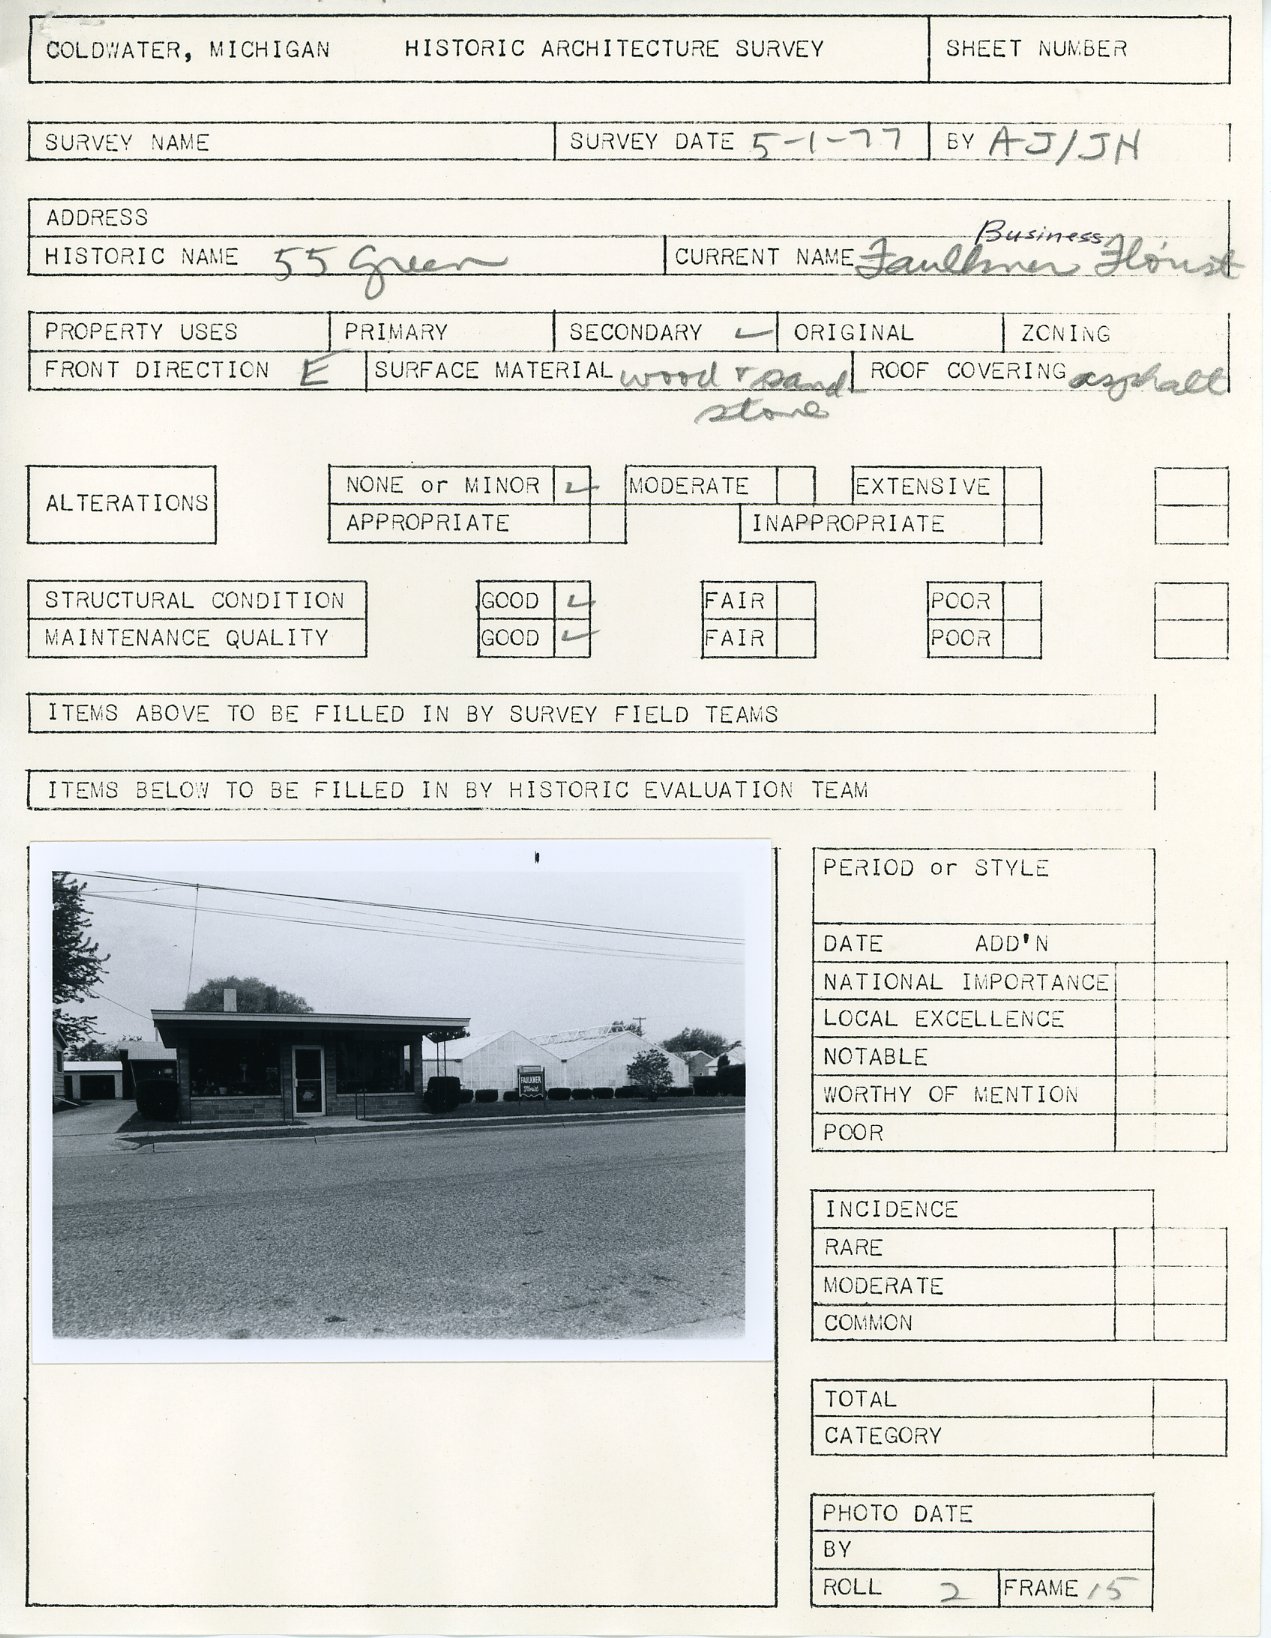 COLDWATER, MICHIGAN HISTORIC ARCHITECTURE SURVEY SHEET NUMBER
SURVEY NAME SURVEY DATE 5-1-77 BY AJ/JH
ADDRESS
Business
HISTORIC NAME 55 Green CURRENT NAME Faulkner Florist
PROPERTY USES PRIMARY SECONDARY ✓ ORIGINAL ZONING
FRONT DIRECTION E SURFACE MATERIAL wood & sand ROOF COVERING asphalt
stone
ALTERATIONS NONE or MINOR ✓ MODERATE EXTENSIVE
APPROPRIATE INAPPROPRIATE
STRUCTURAL CONDITION GOOD ✓ FAIR POOR
MAINTENANCE QUALITY GOOD ✓ FAIR POOR
ITEMS ABOVE TO BE FILLED IN BY SURVEY FIELD TEAMS
ITEMS BELOW TO BE FILLED IN BY HISTORIC EVALUATION TEAM
FAULKNER
Florist
PERIOD or STYLE
DATE ADD'N
NATIONAL IMPORTANCE
LOCAL EXCELLENCE
NOTABLE
WORTHY OF MENTION
POOR
INCIDENCE
RARE
MODERATE
COMMON
TOTAL
CATEGORY
PHOTO DATE
BY
ROLL 2 FRAME 15